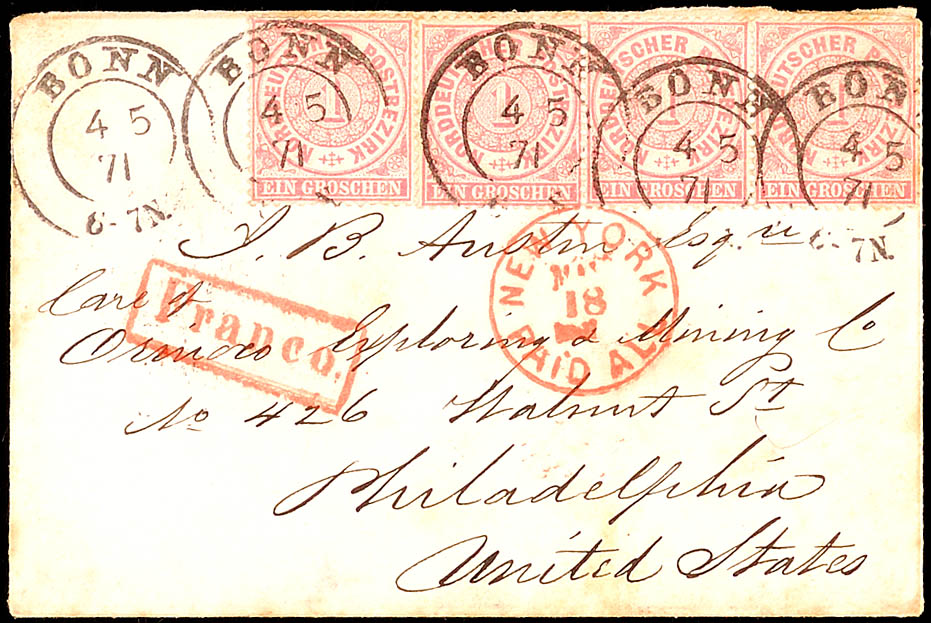 BONN 4 5 71 6-7N.
BONN 4 5 71
BONN 4 5 71
BONN 4 5 71
BONN 4 5 71 6-7N.
NORDDEUTSCHER POSTBEZIRK 1 EIN GROSCHEN
NORDDEUTSCHER POSTBEZIRK 1 EIN GROSCHEN
NORDDEUTSCHER POSTBEZIRK 1 EIN GROSCHEN
NORDDEUTSCHER POSTBEZIRK 1 EIN GROSCHEN
J. B. Austin Esqre
NEW YORK 18 PAID ALL
Franco.
Care of
Orinoco Exploring & Mining Co
No 426 Walnut St
Philadelphia
United States